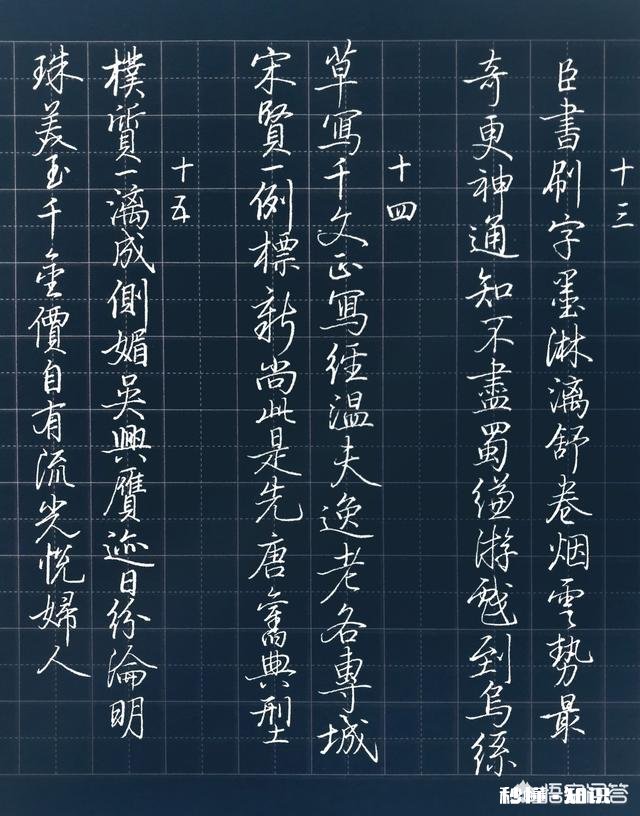 十三
臣書刷字墨淋漓舒卷烟雲勢最
奇更神通知不盡蜀縑游戲到烏絲
十四
草寫千文正寫經温夫逸老各專城
宋賢一例標新尚此是先唐舊典型
十五
樸質一漓成側媚吳興贗迹日紛淪明
珠美玉千金價自有流光悦婦人
悟空问答
秒懂·知识